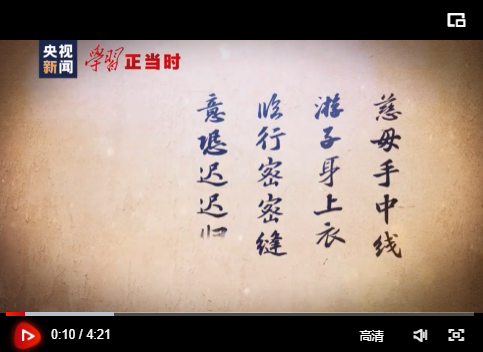 央视
新闻
学习正当时
慈母手中线
游子身上衣
临行密密缝
意恐迟迟归
0:10 / 4:21
高清